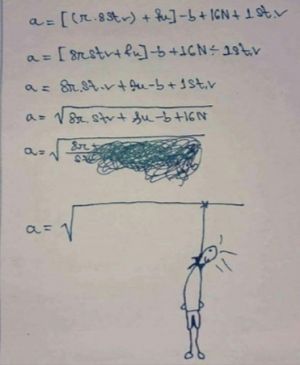 a = [(r.8St,v) + fu] - b + 16N + 1St,v
a = [8rStv + fu] - b + 16N ÷ 1St,v
a = 8r.St.v + 9u - b + 1St,v
a = √8r.Stv + fu - b + 16N
a = √8r
a = √